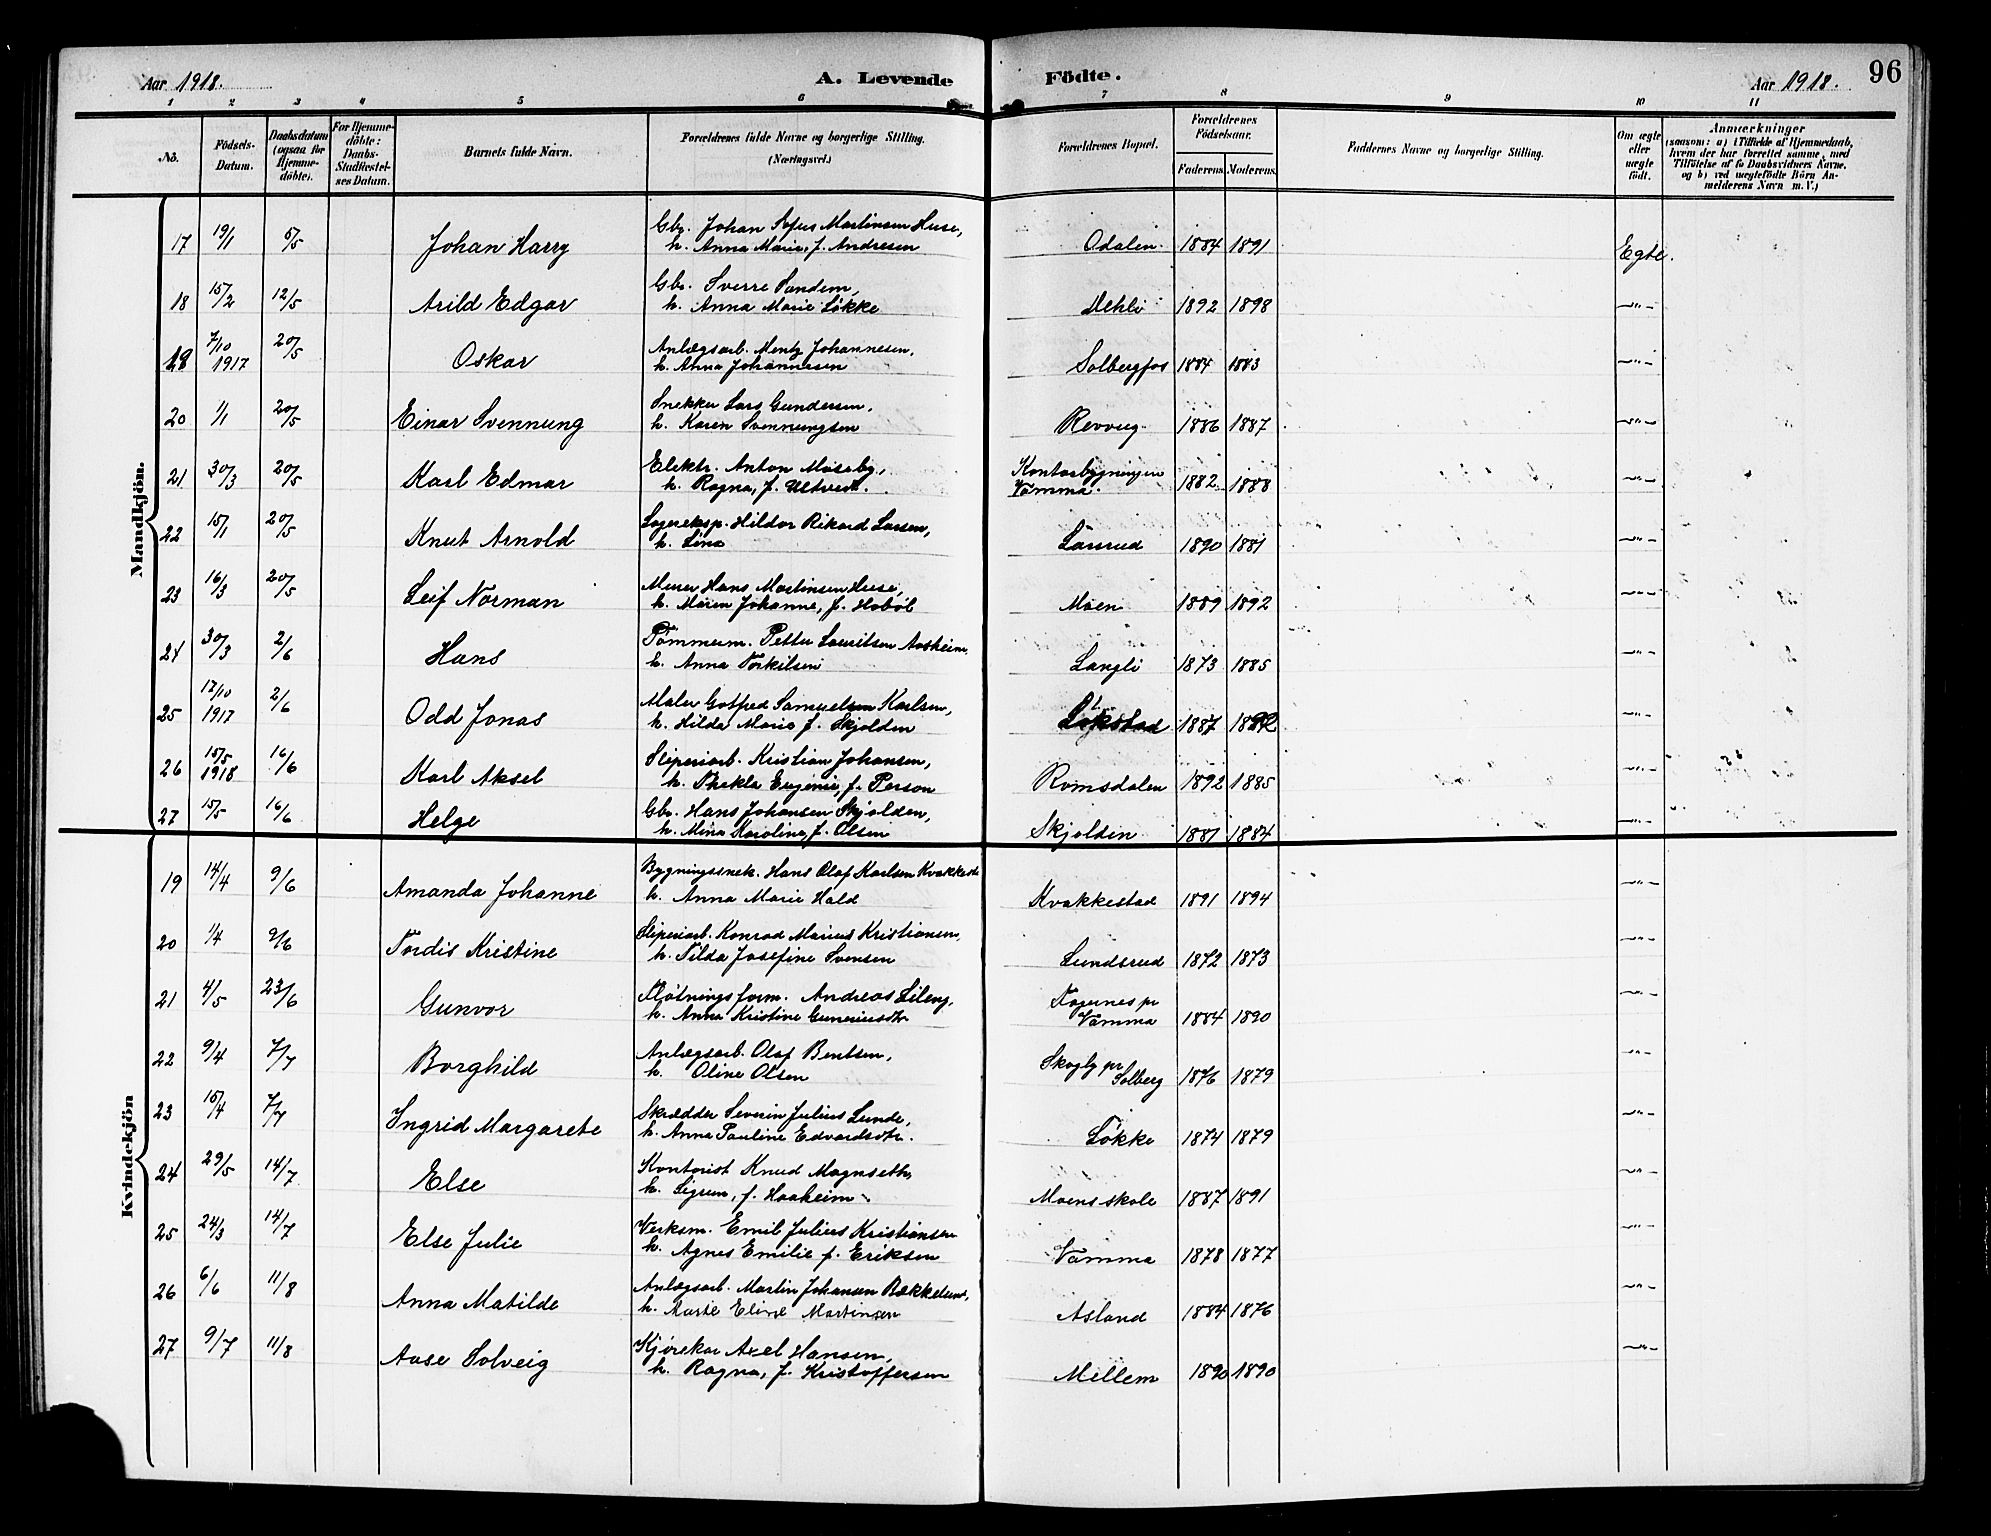 96
Aar 1918. A. Levende Födte. Aar 1918.
1 2 3 4 5 6 7 8 9 10 11
No. Födsels-Datum. Daabsdatum (ogsaa för Hjemme-döbte). For Hjemme-döbte: Daabs-Stadfæstel-ses Datum. Barnets fulde Navn. Forældrenes fulde Navne og borgerlige Stilling. (Næringsvei.) Forældrenes Bopæl. Forældrenes Födselsaar. Faderens. Moderens. Faddernes Navne og borgerlige Stilling. Om ægte eller uægte födt. Anmærkninger (saasom: a) i Tilfælde af Hjemmedaab, hvem der har forrettet samme, med Tilföielse af to Daabsvidners Navne. og b) ved uægtefödte Börn An-melderens Navn m. V.)
Mandkjön.
17 19/1 5/5 Johan Harry Gbr. Johan Sofus Martinsen Huse,
h. Anna Marie, f. Andresen Odalen 1884 1891 Egte.
18 15/2 12/5 Arild Edgar Gbr. Sverre Sandem,
h. Anna Marie Løkke Mehli 1892 1898 -"-
18 7/10 1917 20/5 Oskar Anlægsarb. Mentz Johannesen,
h. Anna Johannesen Solbergfos 1884 1883 -"-
20 1/1 20/5 Einar Svennung Snekker Lars Gundersen,
h. Karen Svennungsen Revoug 1886 1887 -"-
21 30/3 20/5 Karl Edmar Elektr. Anton Moseby,
h. Ragna, f. Ultvedt. Kontorbygningen Vamma. 1882 1888 -"-
22 15/1 20/5 Knut Arnold Lagereksp. Hildor Rikard Larsen,
h. Lina Larsrud 1890 1881 -"-
23 16/3 20/5 Leif Norman Murer Hans Martinsen Huse,
h. Maren Johanne, f. Hobøl Moen 1889 1892 -"-
24 30/3 2/6 Hans Tømmerm. Petter Lauritsen Aasheim
h. Anna Torkilsen Langli 1873 1885 -"-
25 17/10 1917 2/6 Odd Jonas Maler Gotfred Samuelsen Karlsen,
h. Hilda Marie f. Skjolden 1887 1892 -"-
26 15/5 1918 16/6 Karl Aksel Sliperiarb. Kristian Johansen,
h. Thekla Eugenie, f. Person Romsdalen 1892 1885 -"-
27 15/5 16/6 Helge Gbr. Hans Johansen Skjolden,
h. Mina Karolina, f. Olsen Skjolden 1881 1884 -"-
Kvindekjön
19 14/4 9/6 Amanda Johanne Bygningssnek. Hans Olaf Karlsen
h. Anna Marie Hald Kvakkestad 1891 1894 -"-
20 1/4 9/6 Tordis Kristine Sliperiarb. Konrad Marius Kristiansen,
h. Tilda Josefine Svensen Lundsrud 1872 1873 -"-
21 4/5 23/6 Gunvor Fløtningsform. Andreas Lileng,
h. Anna Kristine Guneriusdtr Fagernes pr Vamma 1884 1890 -"-
22 9/4 7/7 Borghild Anlægsarb. Olaf Bentsen,
h. Oline Olsen Skogly pr Solberg 1876 1879 -"-
23 15/4 7/7 Ingrid Margarete Skrædder Severin Julius Lunde,
h. Anna Pauline Edvardsdtr. Løkke 1874 1879 -"-
24 29/5 14/7 Else Kontorist Knud Magnseth,
h. Sigrun, f. Haaheim Moens skole 1887 1891 -"-
25 24/3 14/7 Else Julie Verksm. Emil Julius Kristiansen
h. Agnes Emilie f. Eriksen Vamma 1878 1877 -"-
26 6/6 11/8 Anna Matilde Anlægsarb. Martin Johansen Bækkelund,
h. Marte Eline Martinsen Asland 1884 1876 -"-
27 9/7 11/8 Aase Solveig Kjørekar Axel Hansen,
h. Ragna, f. Kristoffersen Mellem 1890 1890 -"-